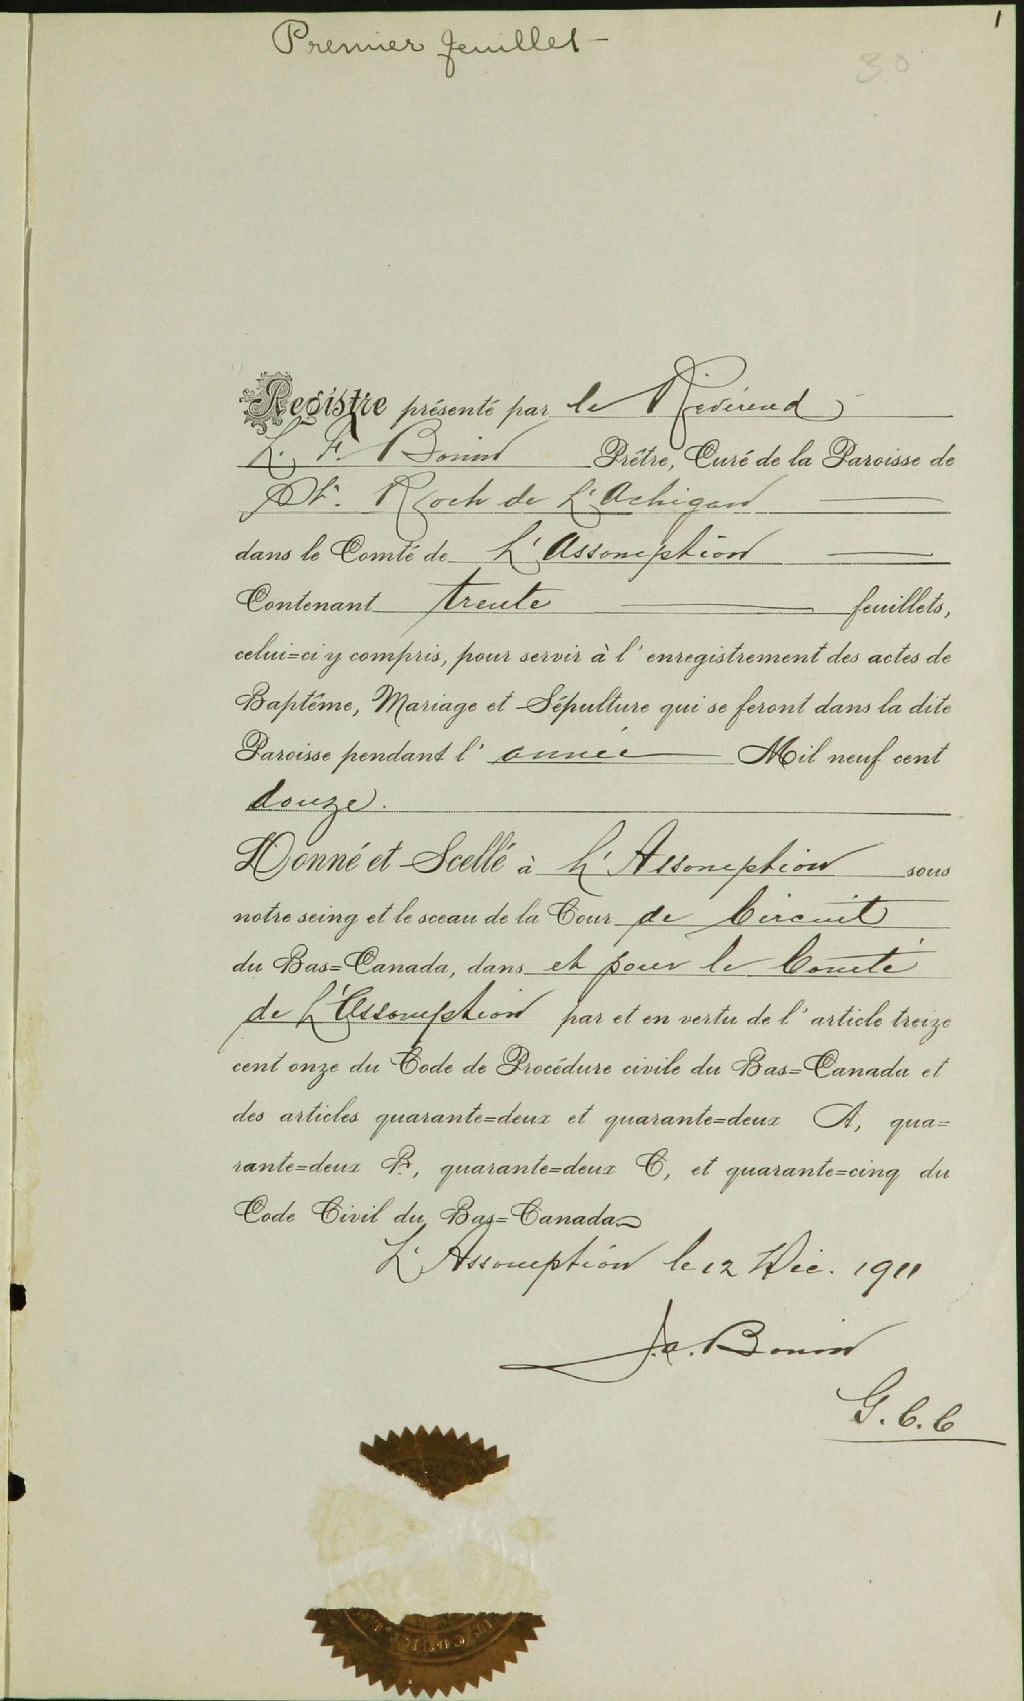 1
Premier feuillet
30
Registre présenté par le Révérend
L. F. Bonin Prêtre, Curé de la Paroisse de
St. Roch de L'Achigan
dans le Comté de L'Assomption
Contenant trente feuillets,
celui=ci y compris, pour servir à l'enregistrement des actes de
Baptême, Mariage et Sépulture qui se feront dans la dite
Paroisse pendant l'année Mil neuf cent
douze.
Donné et Scellé à L'Assomption sous
notre seing et le sceau de la Cour de Circuit
du Bas=Canada, dans et pour le Comté
de L'Assomption par et en vertu de l'article treize
cent onze du Code de Procédure civile du Bas=Canada et
des articles quarante=deux et quarante=deux A, qua=
rante=deux B, quarante=deux C, et quarante=cinq du
Code Civil du Bas=Canada
L'Assomption le 12 Déc. 1911
J. A. Bonin
G. C. C